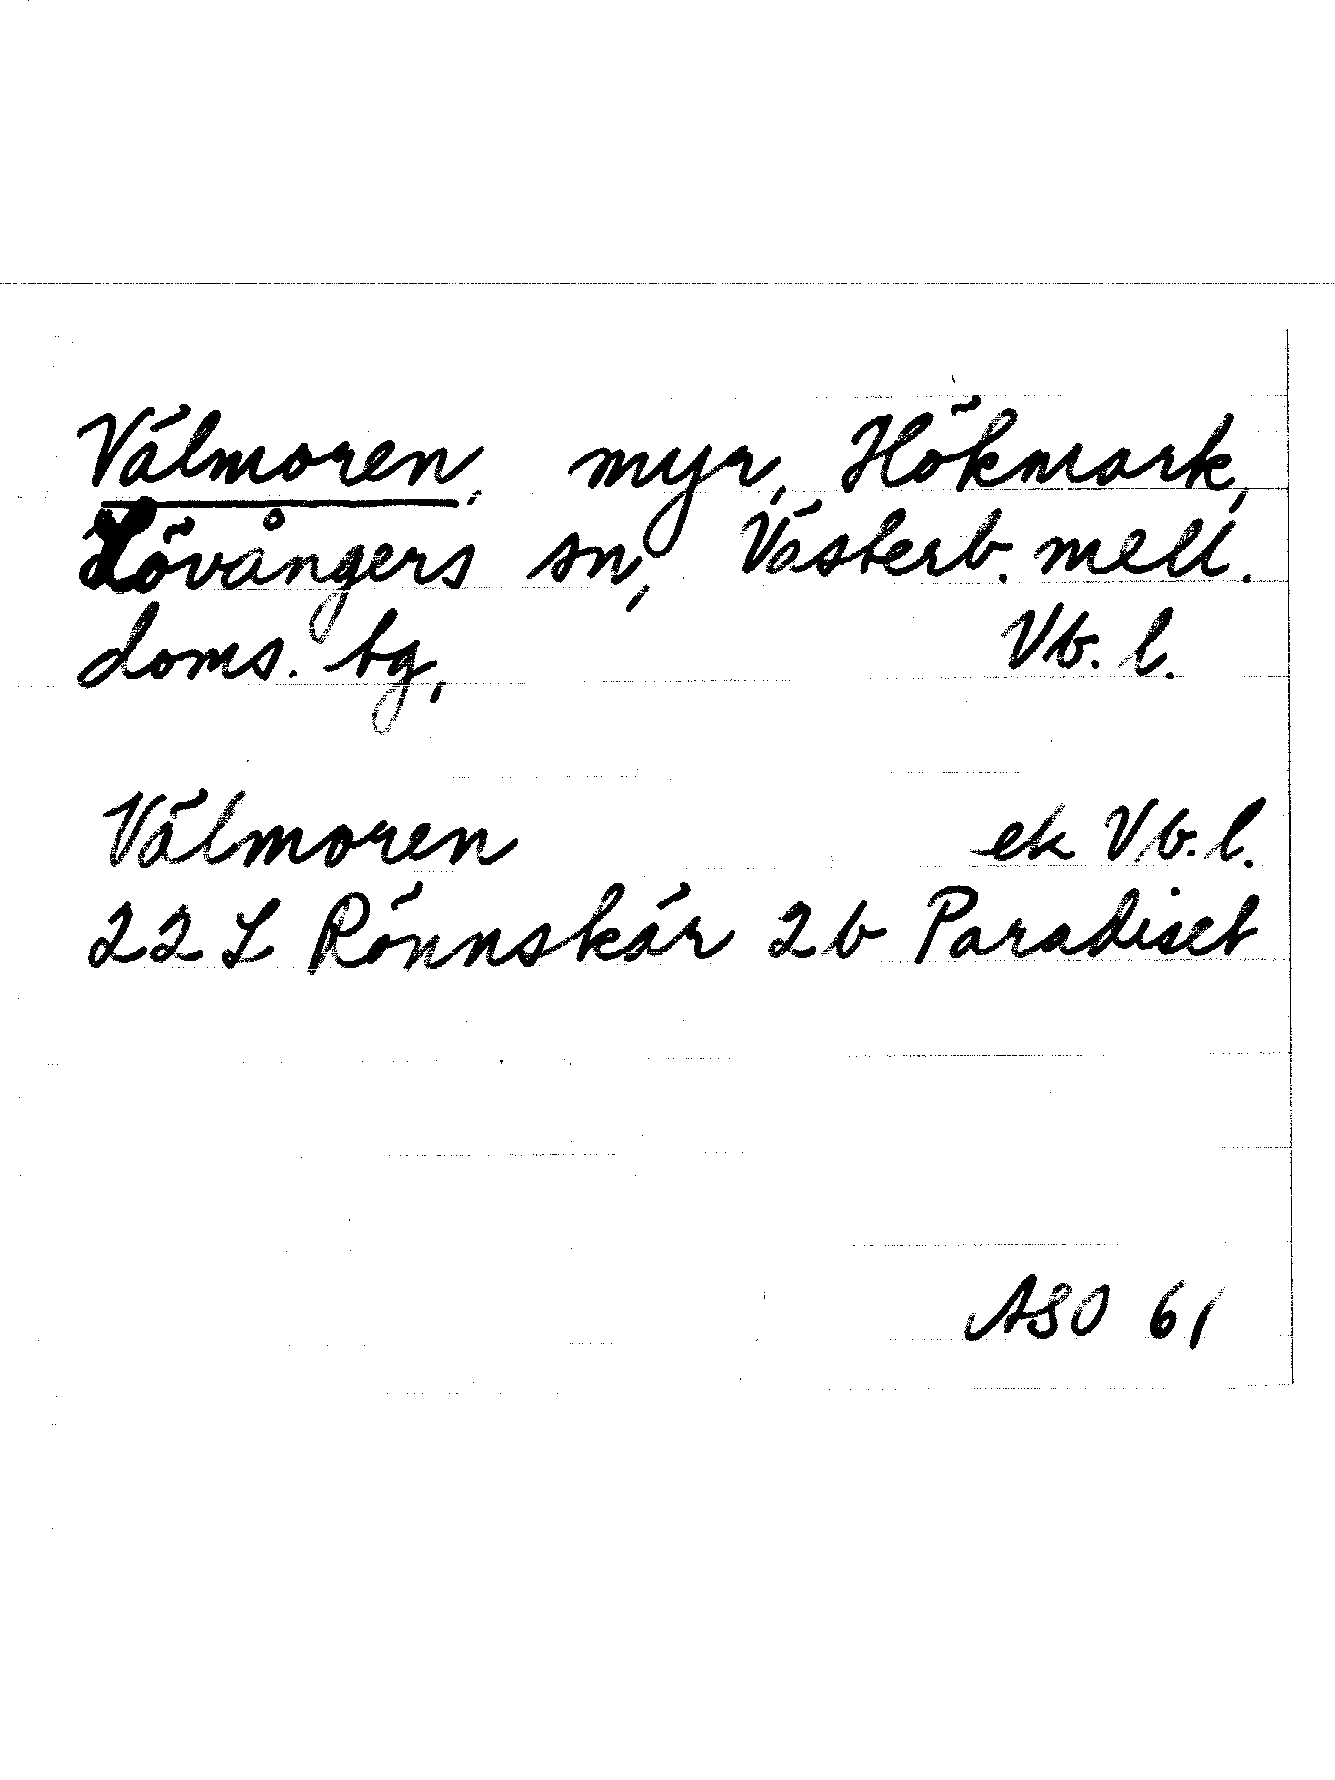 Välmoren, myr, Hökmark,
Lövångers sn, Västerb. mell.
doms. tg, Vb. l.
Välmoren ek Vb. l.
22 L Rönnskär 2b Paradiset
ASO 61